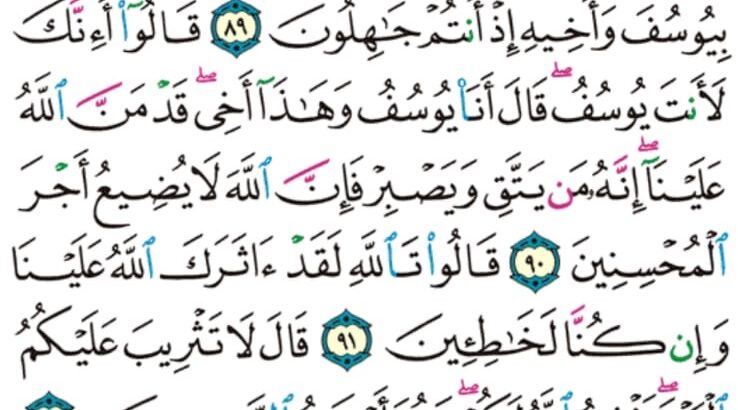 بِيُوسُفَ وَأَخِيهِ إِذۡ أَنتُمۡ جَٰهِلُونَ ٨٩ قَالُوٓاْ أَءِنَّكَ
لَأَنتَ يُوسُفُۖ قَالَ أَنَا۠ يُوسُفُ وَهَٰذَآ أَخِيۖ قَدۡ مَنَّ ٱللَّهُ
عَلَيۡنَآۖ إِنَّهُۥ مَن يَتَّقِ وَيَصۡبِرۡ فَإِنَّ ٱللَّهَ لَا يُضِيعُ أَجۡرَ
ٱلۡمُحۡسِنِينَ ٩٠ قَالُواْ تَٱللَّهِ لَقَدۡ ءَاثَرَكَ ٱللَّهُ عَلَيۡنَا
وَإِن كُنَّا لَخَٰطِـِٔينَ ٩١ قَالَ لَا تَثۡرِيبَ عَلَيۡكُمُ